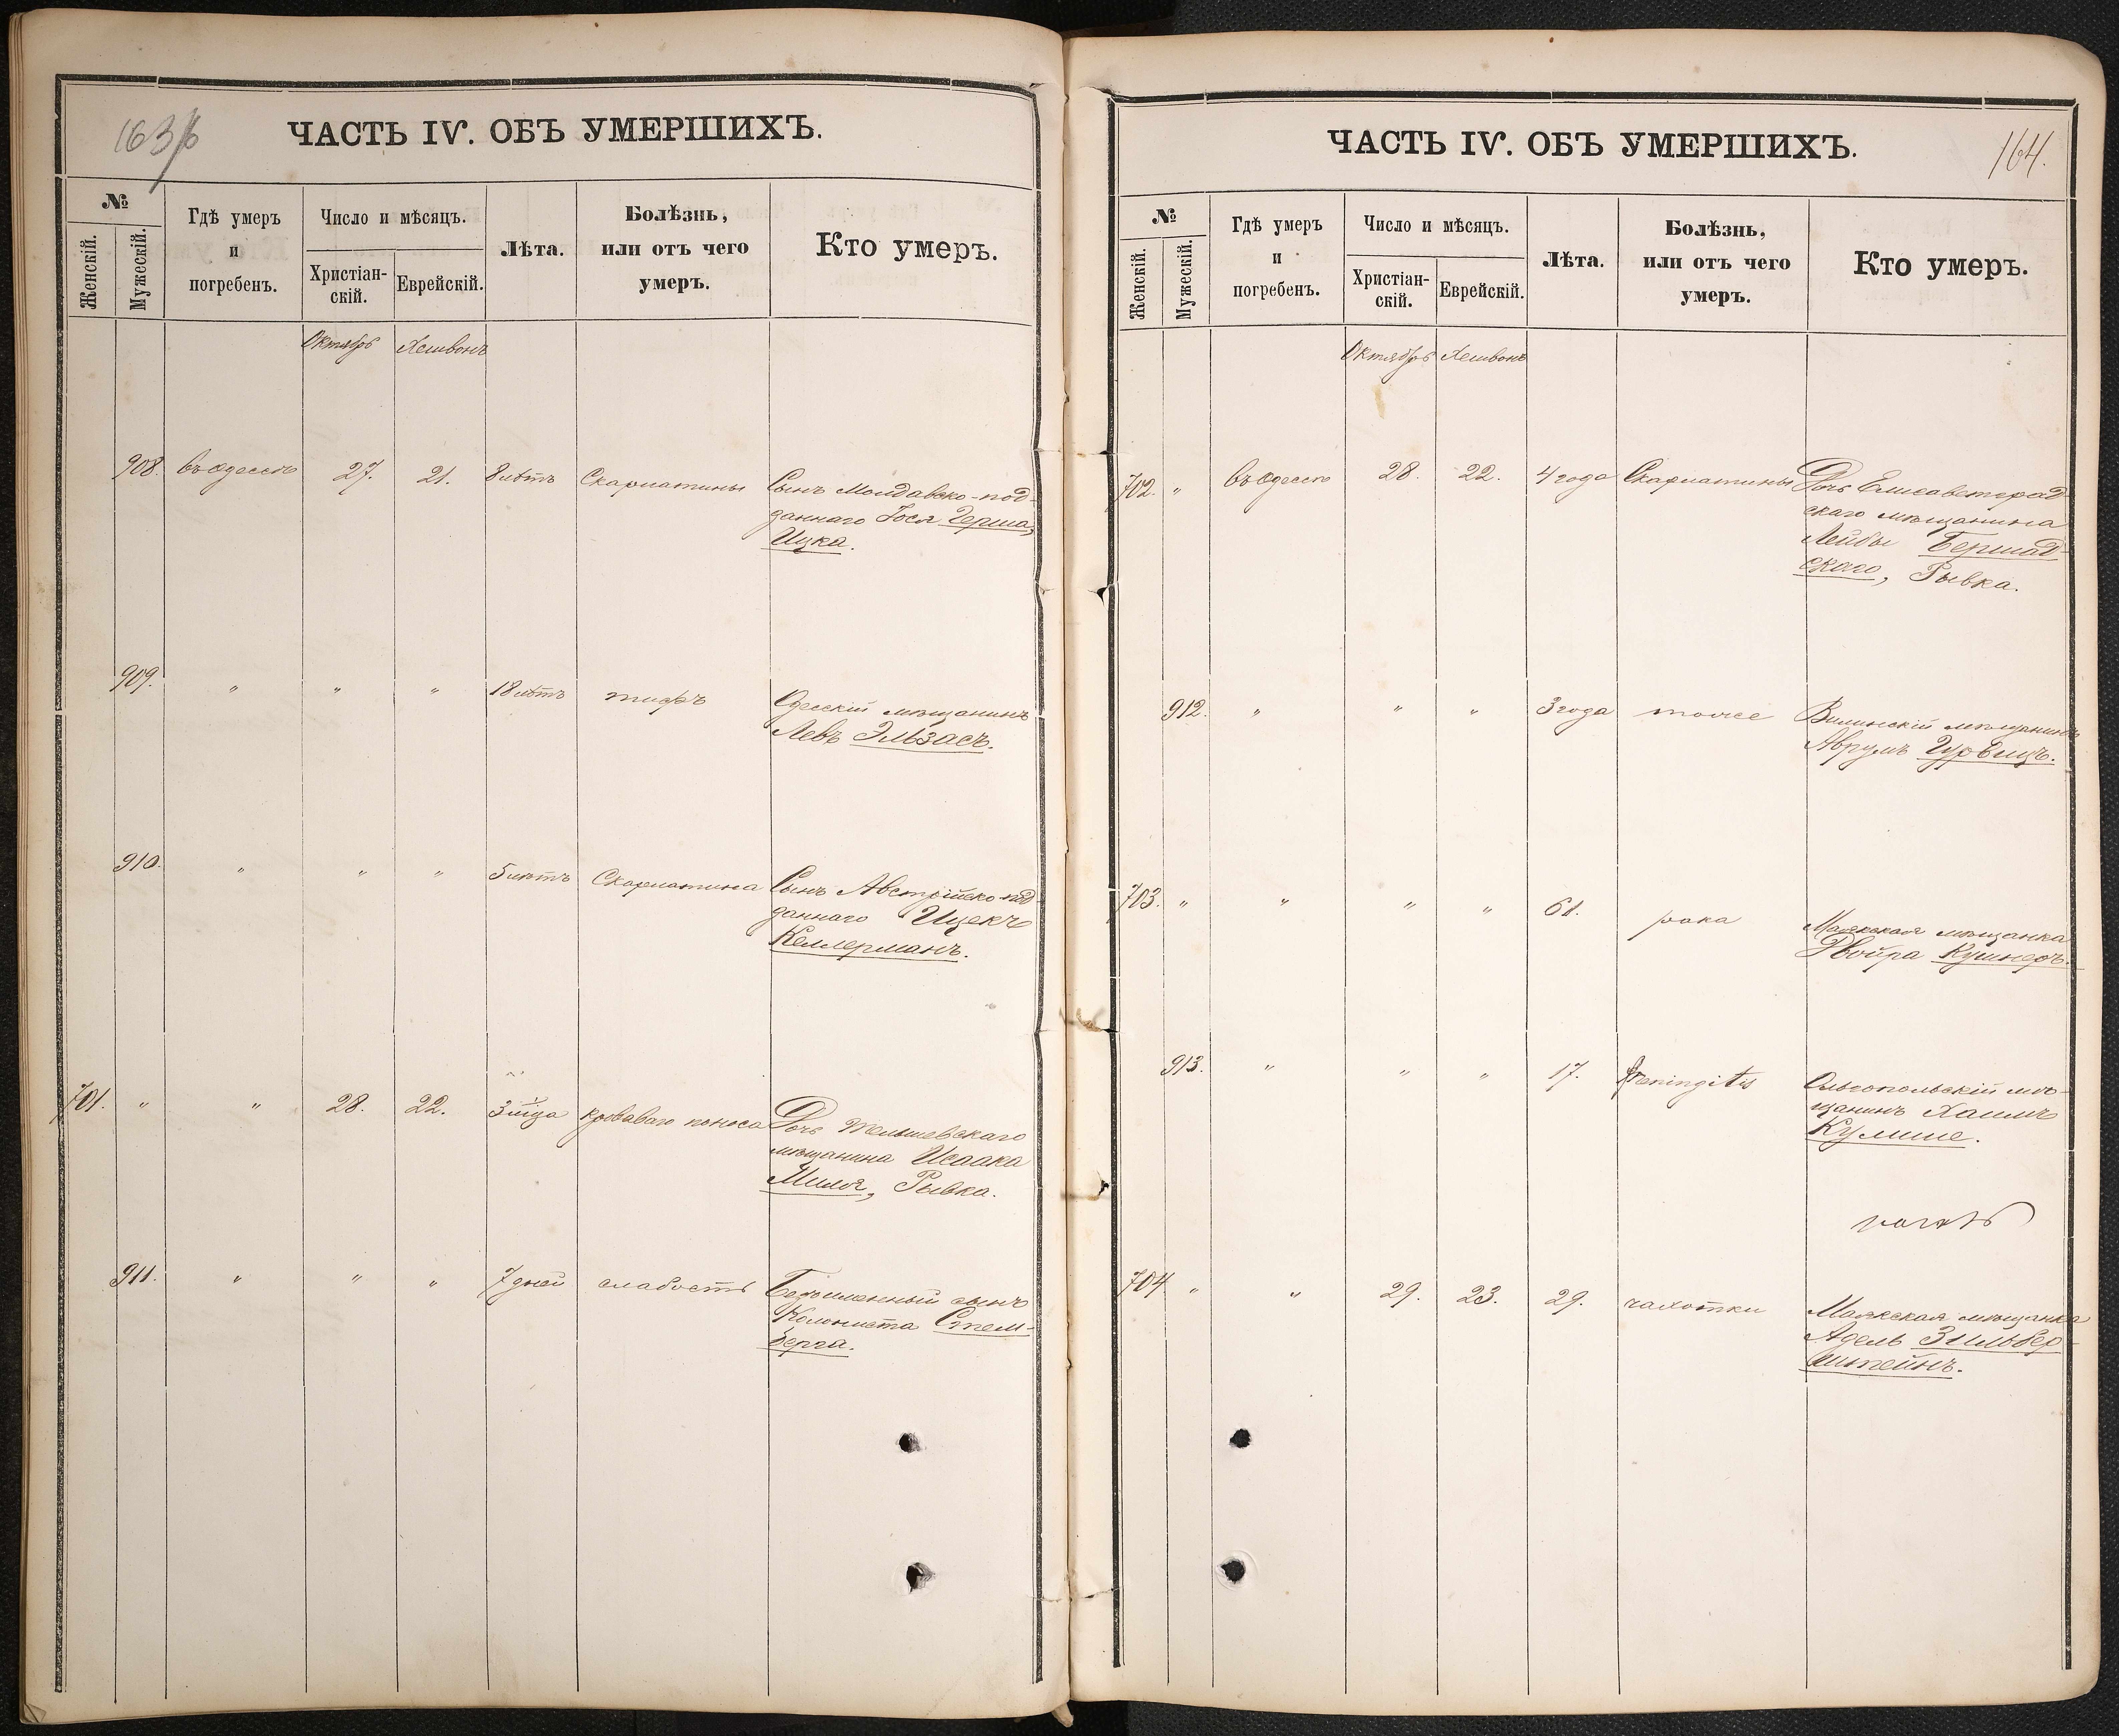 163/б
ЧАСТЬ IV. ОБЪ УМЕРШИХЪ.
№
Женскій.
Мужескій.
Гдѣ умеръ
и
погребенъ.
Число и мѣсяцъ.
Христіан-
скій.
Еврейскій.
Лѣта.
Болѣзнь,
или отъ чего
умеръ.
Кто умеръ.
Октябрь Хешвонъ
908. въ Одессѣ 27. 21. 8 лѣтъ Скарлатины Сынъ Молдавско-под-
даннаго Іося Герша,
Ицка.
909. " " " 18 лѣтъ тифъ Одесскій мѣщанинъ
Левъ Эльзасъ.
910. " " " 5 лѣтъ Скарлатина Сынъ Австрійско-под-
даннаго Ицекъ
Келлерманъ.
701. " " 28. 22. 3 м-ца кроваваго поноса Дочь Тельшевскаго
мѣщанина Исаака
Миля, Рывка.
911. " " " 7 дней слабость Безъименный сынъ
Колониста Стем-
берга.
164.
ЧАСТЬ IV. ОБЪ УМЕРШИХЪ.
№
Женскій.
Мужескій.
Гдѣ умеръ
и
погребенъ.
Число и мѣсяцъ.
Христіан-
скій.
Еврейскій.
Лѣта.
Болѣзнь,
или отъ чего
умеръ.
Кто умеръ.
Октябрь Хешвонъ
702. " въ Одессѣ 28. 22. 4 года Скарлатины Дочь Елисаветград-
скаго мѣщанина
Лейбы Бершад-
скаго, Рывка.
912. " " " 3 года тоже Виленскій мѣщанинъ
Аврумъ Гурвицъ.
703. " " " " 61. рака Маякская мѣщанка
Двойра Кушнеръ.
913. " " " 17. meningitis Ольгопольскій мѣ-
щанинъ Хаимъ
704. " " 29. 23. 29. чахотки Маякская мѣщанка
Адель Зильбер-
штейнъ.